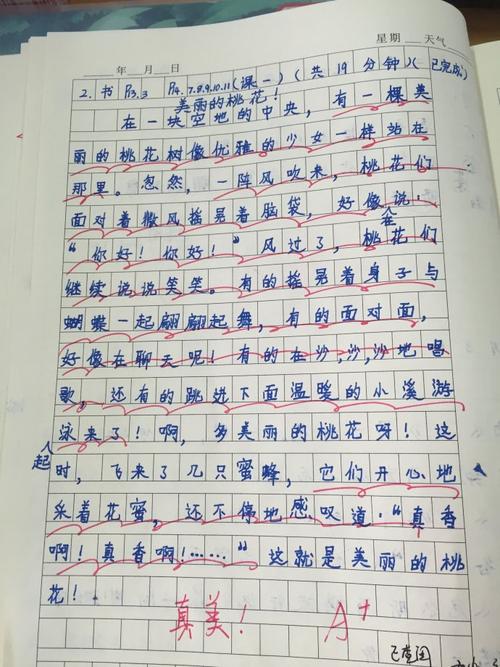 星期 天气
年 月 日
2. 书 P3.3 P4.7.8.9.10.11(课一)(共19分钟)(已完成)
美丽的桃花!
在一块空地的中央,有一棵美
丽的桃花树像优雅的少女一样站在
那里。忽然,一阵风吹来,桃花们
面对着微风摇晃着脑袋,好像说:
“你好!你好!”风过了,桃花们在
继续说说笑笑。有的摇晃着身子与
蝴蝶一起翩翩起舞,有的面对面,
好像在聊天呢!有的在沙,沙,沙地唱
歌,还有的跳进下面温暖的小溪游
泳来了!啊,多美丽的桃花呀!这
起
时,飞来了几只蜜蜂,它们开心地
采着花蜜,还不停地感叹道:“真香
啊!真香啊!……”这就是美丽的桃
花!
真美! A+